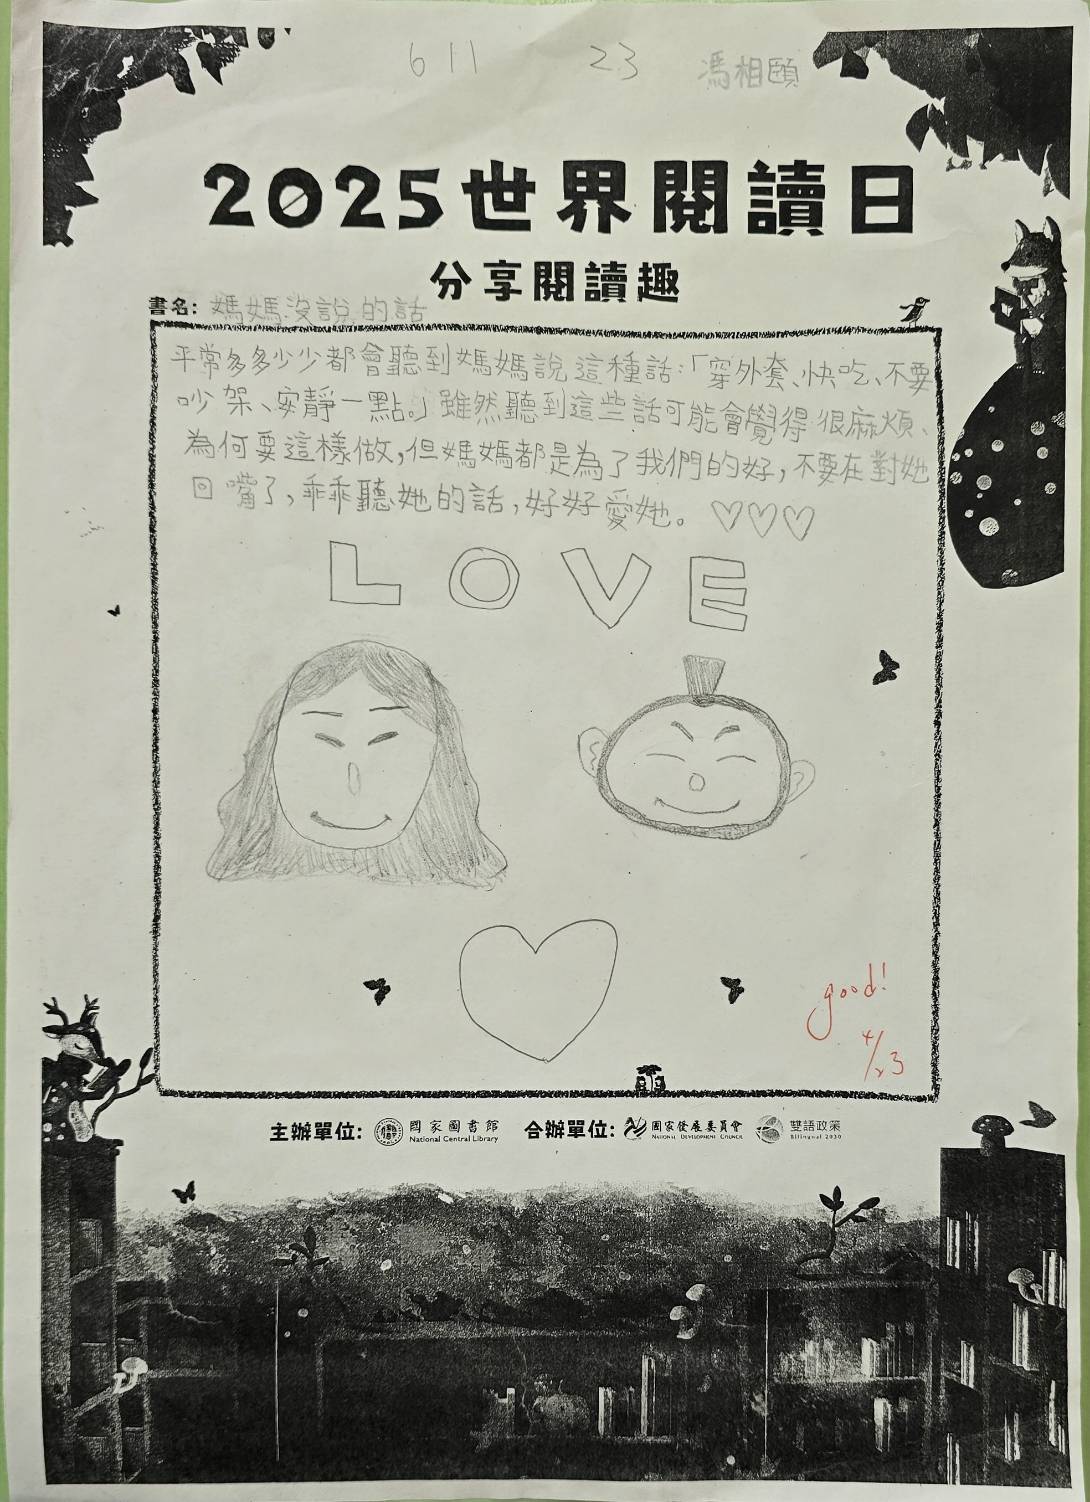 611 23 馮相頤
2025世界閱讀日
分享閱讀趣
書名: 媽媽沒說的話
平常多多少少都會聽到媽媽說這種話:「穿外套、快吃、不要
吵架、安靜一點。」雖然聽到這些話可能會覺得很麻煩、
為何要這樣做,但媽媽都是為了我們的好,不要在對她
回嘴了,乖乖聽她的話,好好愛她。♡♡♡
LOVE
good!
4/23
主辦單位: 國家圖書館 National Central Library 合辦單位: 國家發展委員會 National Development Council 雙語政策 Bilingual 2030